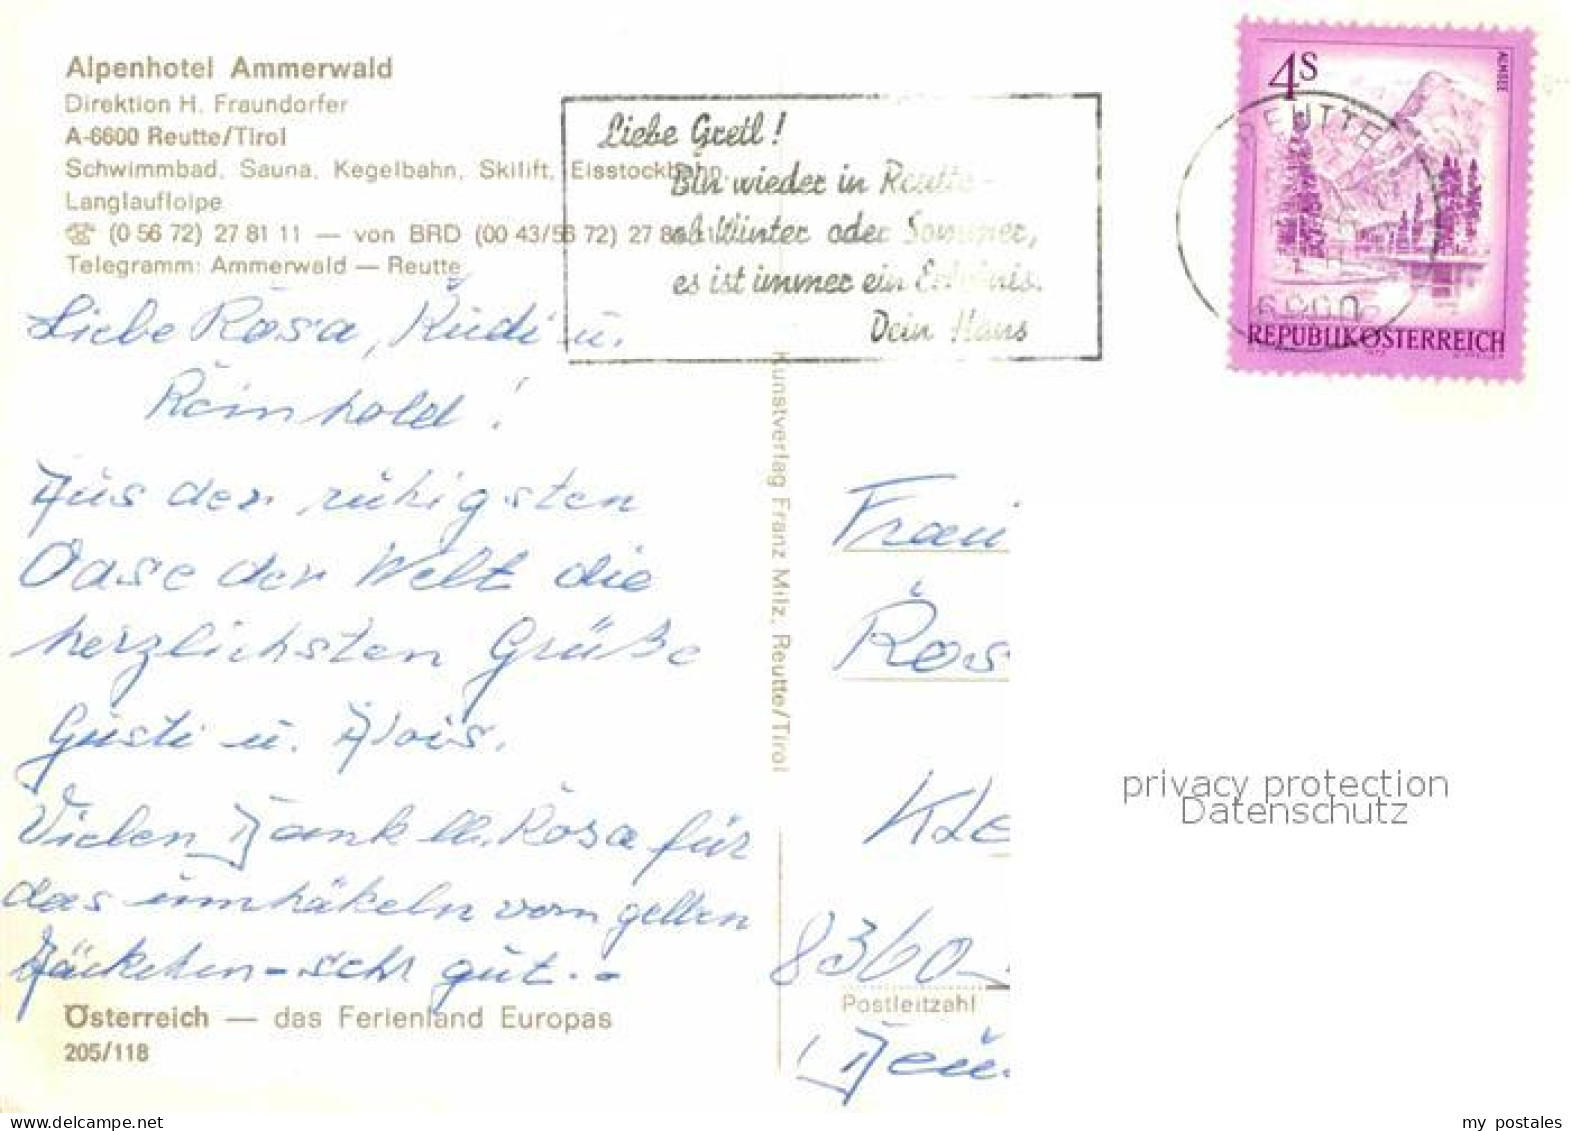 Alpenhotel Ammerwald
Direktion H. Fraundorfer
A-6600 Reutte/Tirol
Schwimmbad, Sauna, Kegelbahn, Skilift, Eisstockbahn,
Langlaufloipe
☏ (0 56 72) 27 81 11 — von BRD (00 43/56 72) 27 81 11
Telegramm: Ammerwald — Reutte
Liebe Gretl!
Bin wieder in Reutte -
ob Winter oder Sommer,
es ist immer ein Erlebnis.
Dein Hans
4S
ALMSEE
REUTTE
6600
REPUBLIK ÖSTERREICH
Liebe Rosa, Rudi u.
Reinhold!
Aus der ruhigsten
Oase der Welt die
herzlichsten Grüße
Gusti u. Alois.
Vielen Dank lb. Rosa für
das umhäkeln vom gelben
Jäckchen - sehr gut. -
Österreich — das Ferienland Europas
205/118
Kunstverlag Franz Milz, Reutte/Tirol
Frau
Ros
Kle
8360
Postleitzahl
Deu
privacy protection
Datenschutz
my postales